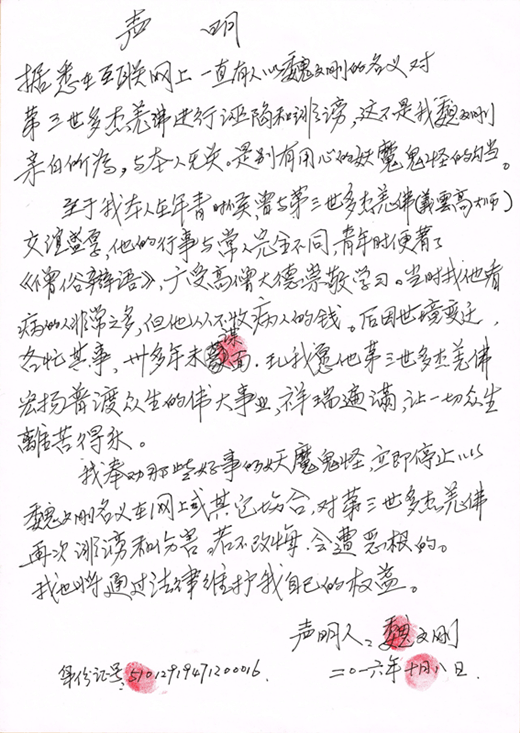 声 明
据悉在互联网上一直有人以魏文刚的名义对
第三世多杰羌佛进行诬陷和诽谤，这不是我魏文刚
亲自所为，与本人无关。是别有用心的妖魔鬼怪的勾当。
至于我本人在年青时候，曾与第三世多杰羌佛(義雲高大师)
交谊益厚，他的行事与常人完全不同，青年时便著了
《僧俗辩语》，广受高僧大德崇敬学习。当时找他看
病的人非常之多，但他从不收病人的钱。后因世境变迁，
各忙其事，卅多年未谋面。现我愿他第三世多杰羌佛
宏扬普渡众生的伟大事业，祥瑞遍满，让一切众生
離苦得永。
我奉劝那些好事的妖魔鬼怪，立即停止以
魏文刚名义在网上或其它场合，对第三世多杰羌佛
再次诽谤和伤害。若不改悔，会遭恶报的。
我也将通过法律维护我自己的权益。
声明人：魏文刚
身份证号：51012919471200016.
二〇一六年十月八日.